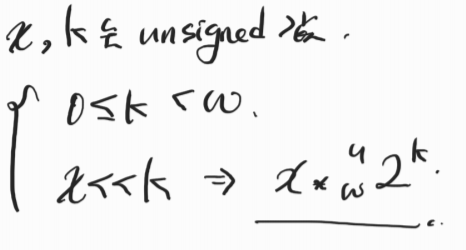 x, k를 unsigned 값.
0 ≤ k < w.
x<<k ⇒ x *ᵘ_w 2ᵏ.